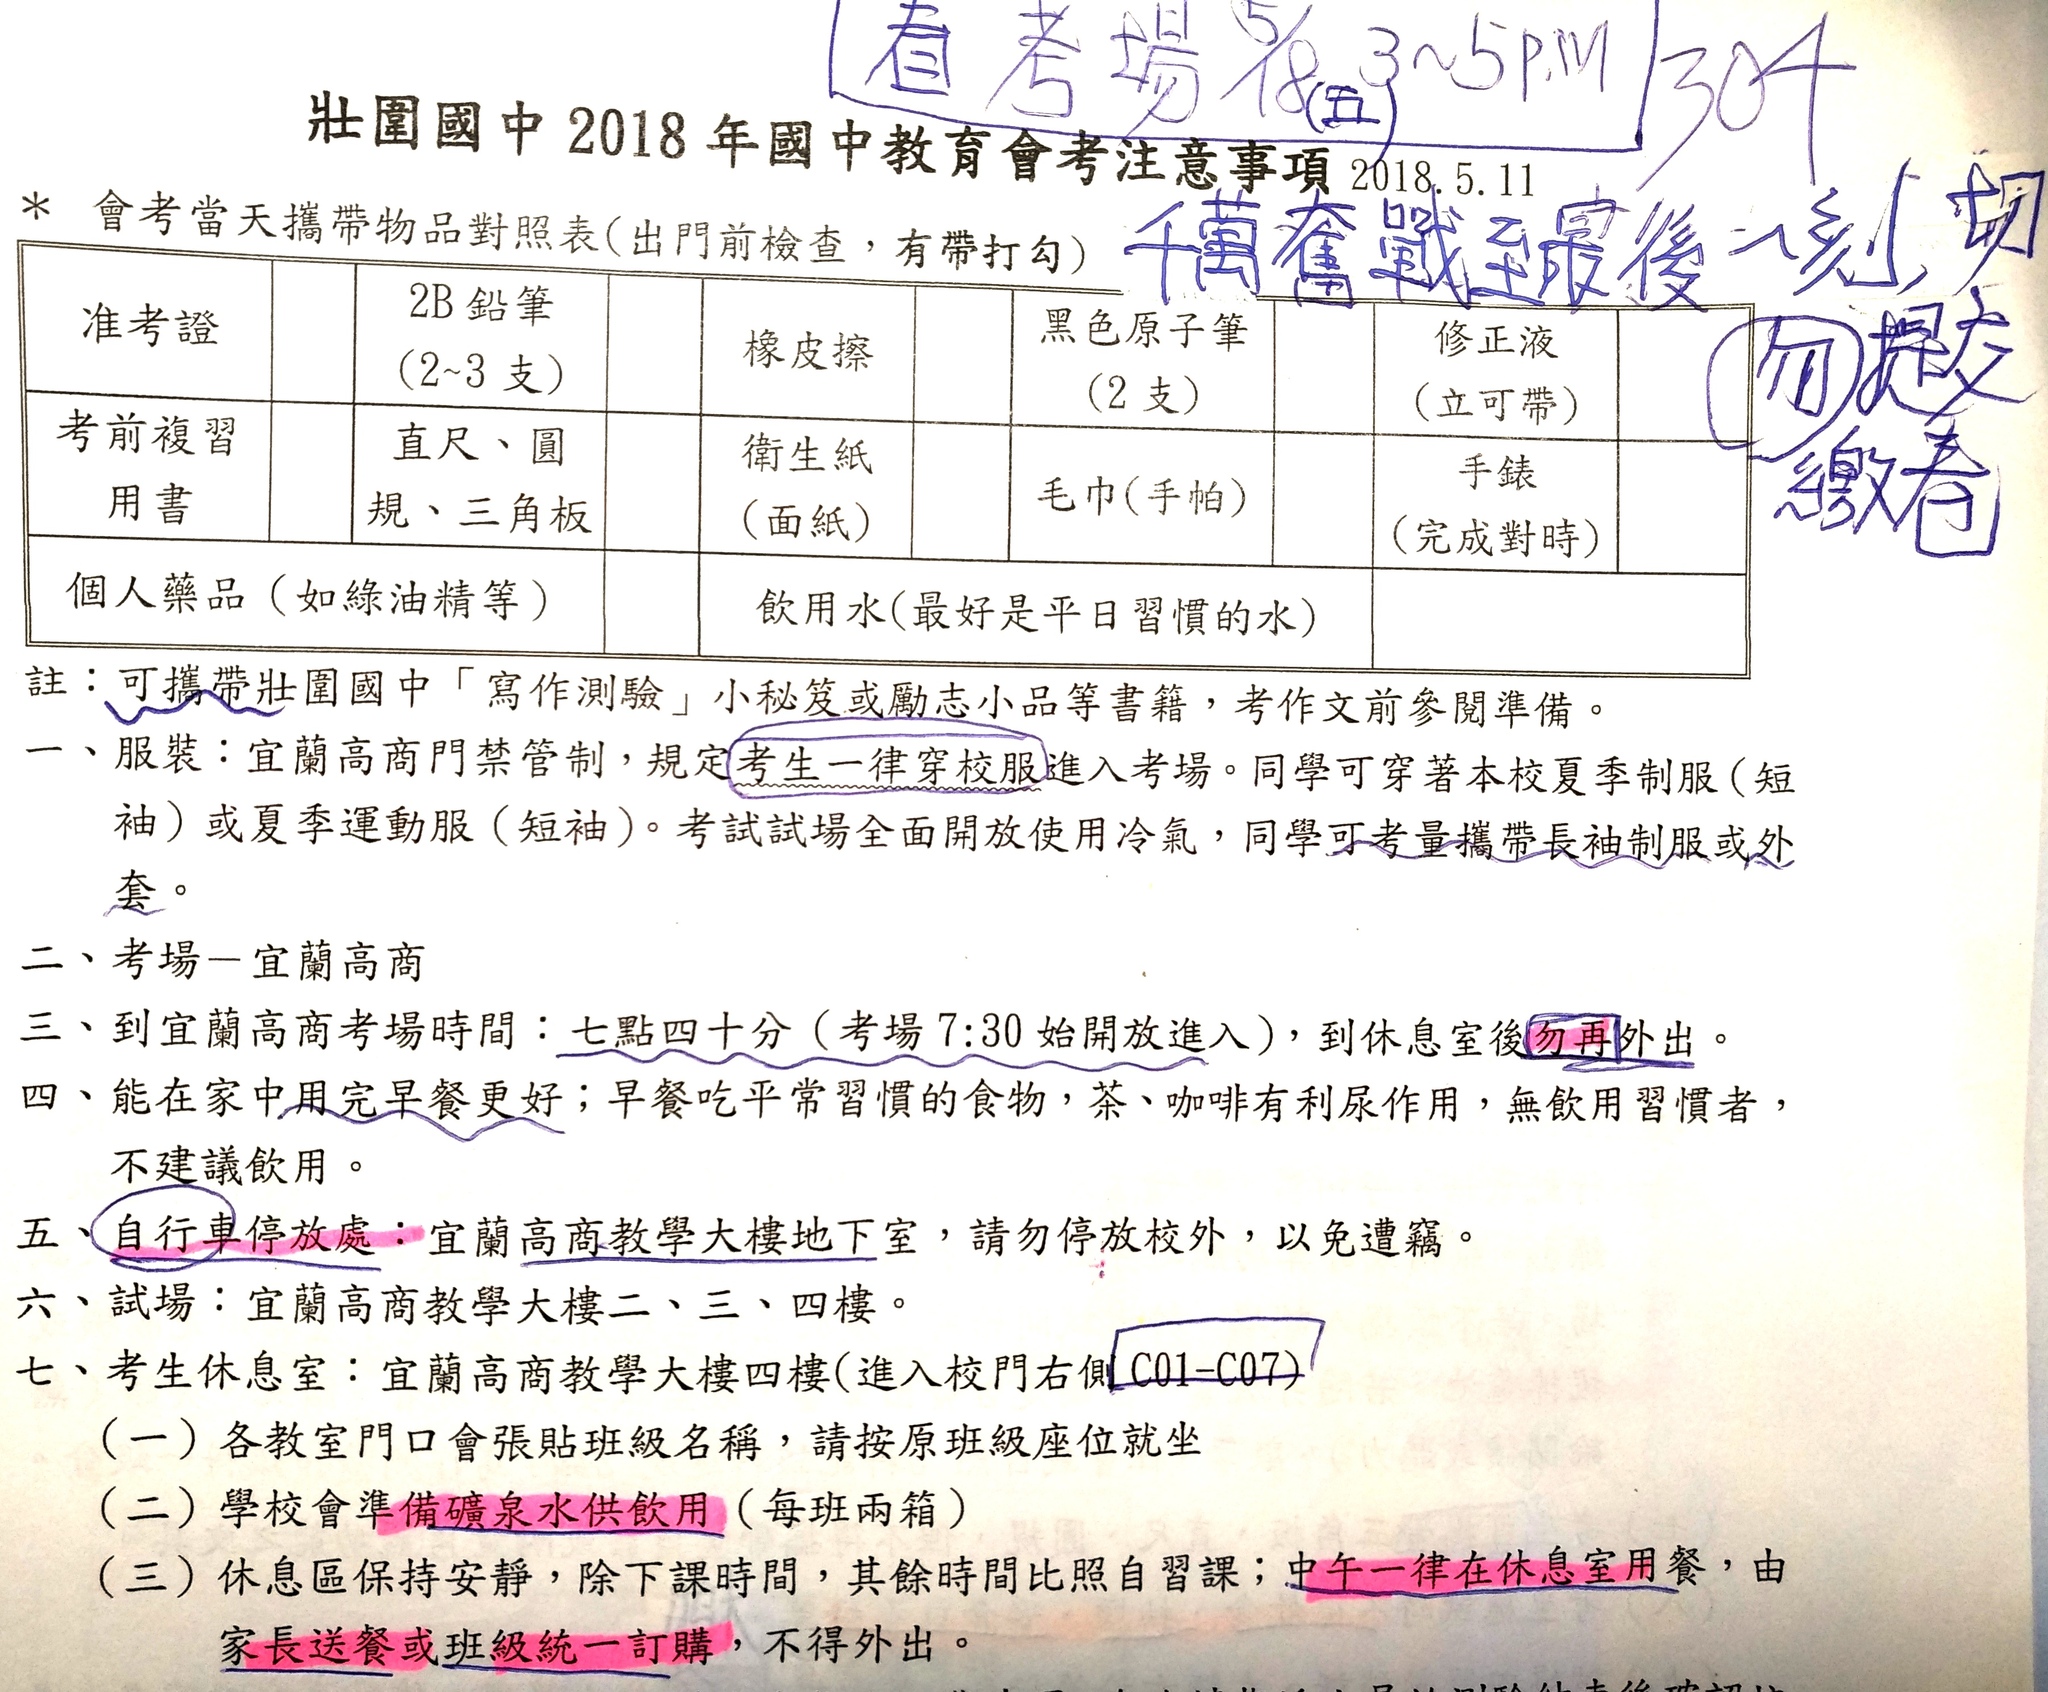 看考場 5/18(五) 3~5 p.m
304
壯圍國中 2018 年國中教育會考注意事項 2018.5.11
千萬奮戰至最後一刻,切
勿提交
繳卷
＊ 會考當天攜帶物品對照表(出門前檢查，有帶打勾)
准考證 2B 鉛筆(2~3 支) 橡皮擦 黑色原子筆(2 支) 修正液(立可帶)
考前複習用書 直尺、圓規、三角板 衛生紙(面紙) 毛巾(手帕) 手錶(完成對時)
個人藥品（如綠油精等） 飲用水(最好是平日習慣的水)
註：可攜帶壯圍國中「寫作測驗」小秘笈或勵志小品等書籍，考作文前參閱準備。
一、服裝：宜蘭高商門禁管制，規定考生一律穿校服進入考場。同學可穿著本校夏季制服（短
袖）或夏季運動服（短袖）。考試試場全面開放使用冷氣，同學可考量攜帶長袖制服或外
套。
二、考場－宜蘭高商
三、到宜蘭高商考場時間：七點四十分（考場 7:30 始開放進入），到休息室後勿再外出。
四、能在家中用完早餐更好；早餐吃平常習慣的食物，茶、咖啡有利尿作用，無飲用習慣者，
不建議飲用。
五、自行車停放處：宜蘭高商教學大樓地下室，請勿停放校外，以免遭竊。
六、試場：宜蘭高商教學大樓二、三、四樓。
七、考生休息室：宜蘭高商教學大樓四樓(進入校門右側 C01-C07)
（一）各教室門口會張貼班級名稱，請按原班級座位就坐
（二）學校會準備礦泉水供飲用（每班兩箱）
（三）休息區保持安靜，除下課時間，其餘時間比照自習課；中午一律在休息室用餐，由
家長送餐或班級統一訂購，不得外出。